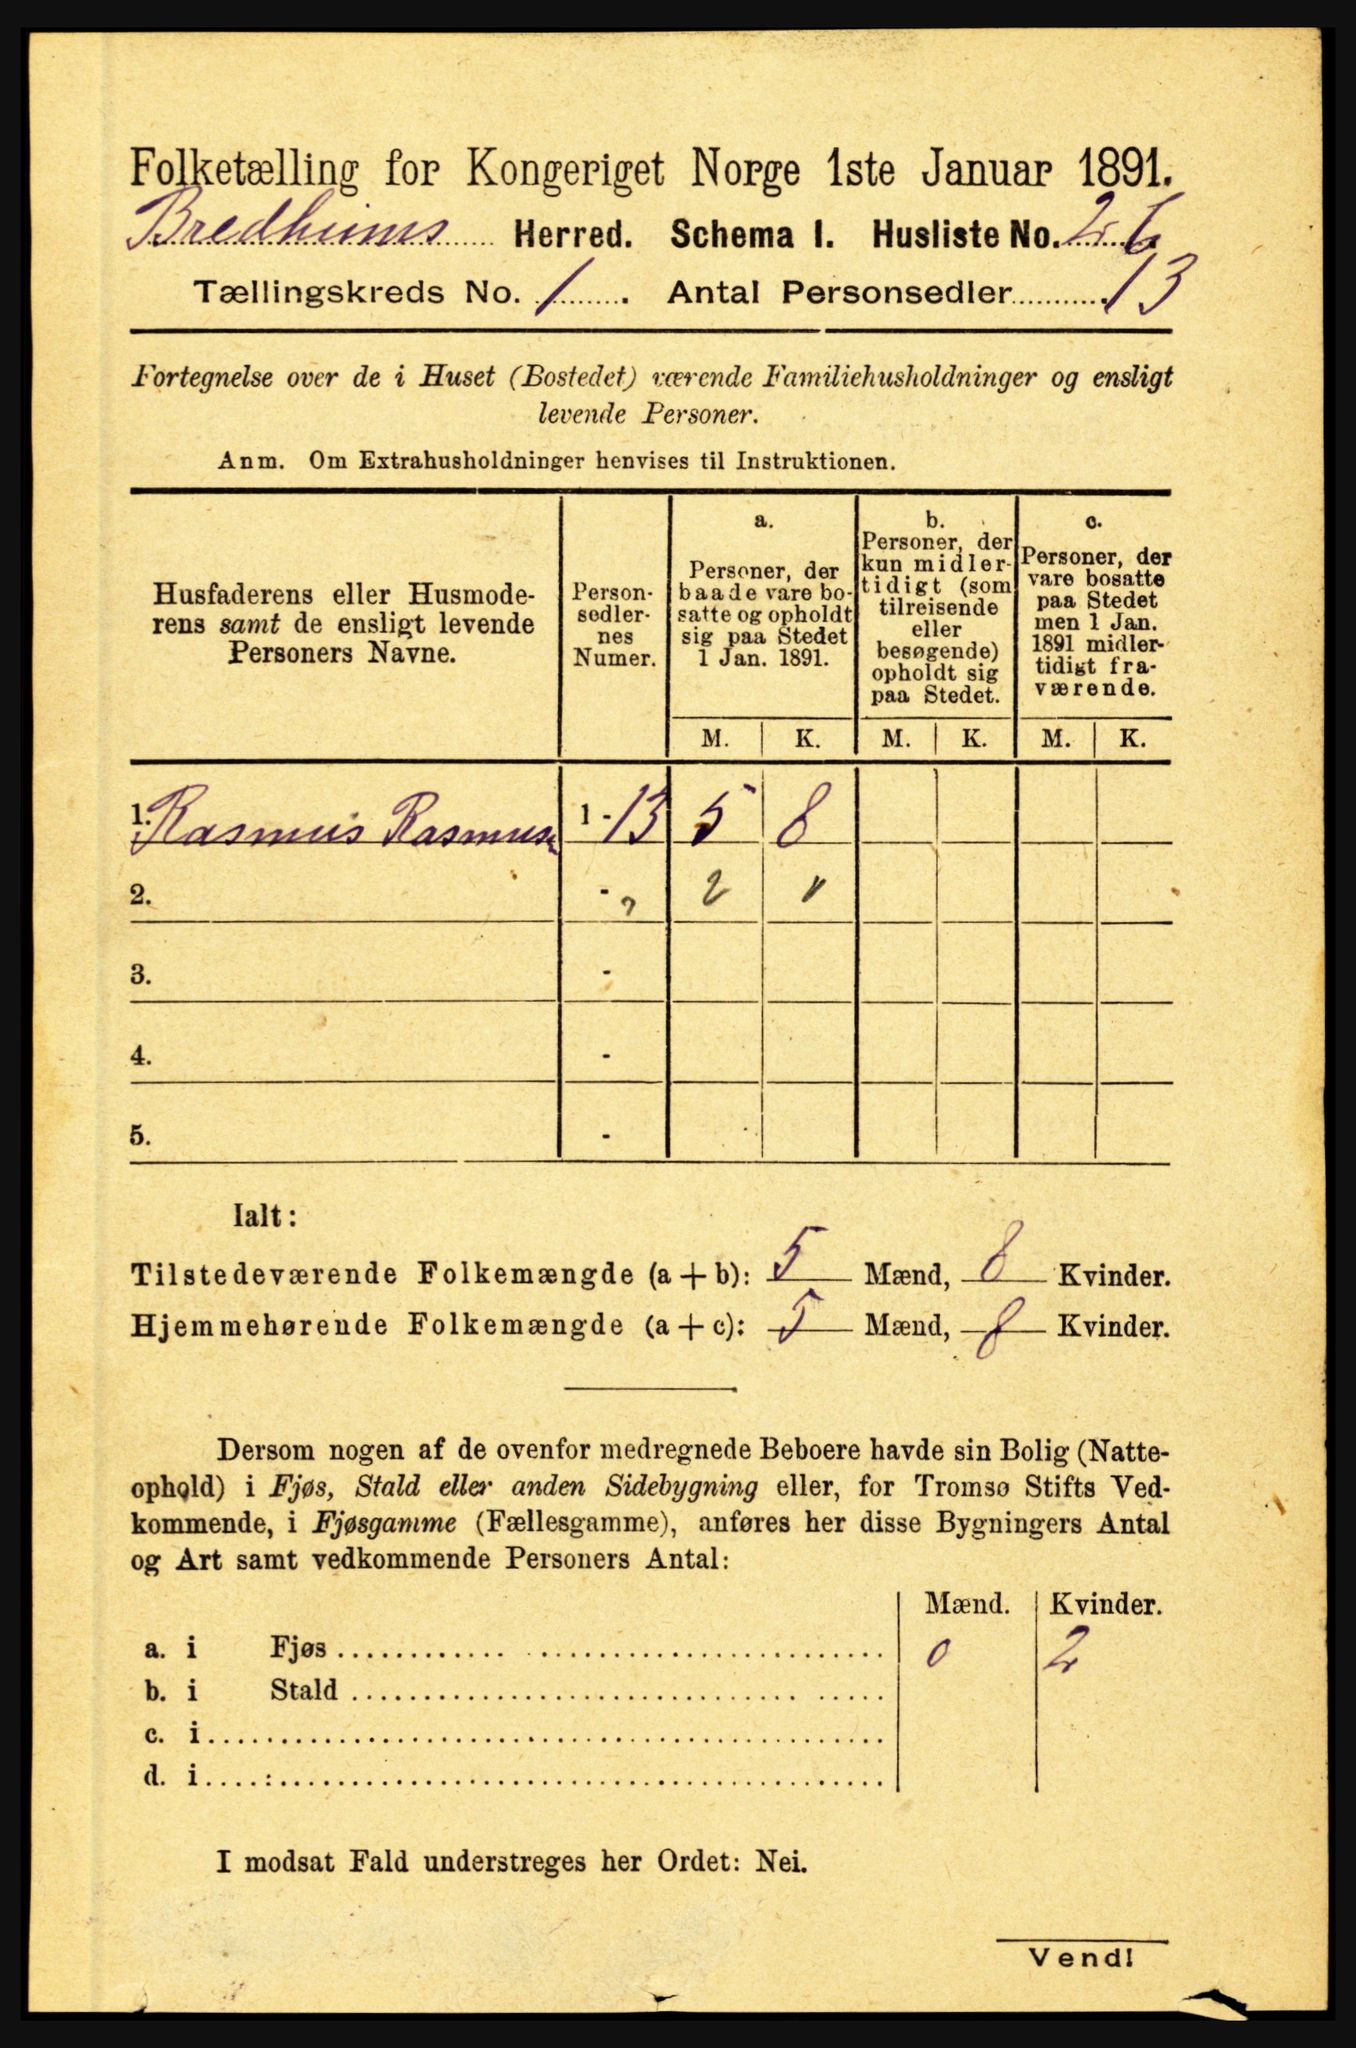 Folketælling for Kongeriget Norge 1ste Januar 1891.
Bredheims Herred. Schema I. Husliste No. 26
Tællingskreds No. 1. Antal Personsedler 13
Fortegnelse over de i Huset (Bostedet) værende Familiehusholdninger og ensligt
levende Personer.
Anm. Om Extrahusholdninger henvises til Instruktionen.
Husfaderens eller Husmode-
rens samt de ensligt levende
Personers Navne.
Person-
sedler-
nes
Numer.
a.
Personer, der
baade vare bo-
satte og opholdt
sig paa Stedet
1 Jan. 1891.
b.
Personer, der
kun midler-
tidigt (som
tilreisende
eller
besøgende)
opholdt sig
paa Stedet.
c.
Personer, der
vare bosatte
paa Stedet
men 1 Jan.
1891 midler-
tidigt fra-
værende.
M. K. M. K. M. K.
1. Rasmus Rasmusn 1 - 13 5 8
2. - 2
3. -
4. -
5. -
Ialt:
Tilstedeværende Folkemængde (a + b): 5 Mænd, 8 Kvinder.
Hjemmehørende Folkemængde (a + c): 5 Mænd, 8 Kvinder.
Dersom nogen af de ovenfor medregnede Beboere havde sin Bolig (Natte-
ophold) i Fjøs, Stald eller anden Sidebygning eller, for Tromsø Stifts Ved-
kommende, i Fjøsgamme (Fællesgamme), anføres her disse Bygningers Antal
og Art samt vedkommende Personers Antal:
Mænd. Kvinder.
a. i Fjøs 0 2
b. i Stald
c. i
d. i
I modsat Fald understreges her Ordet: Nei.
Vend!